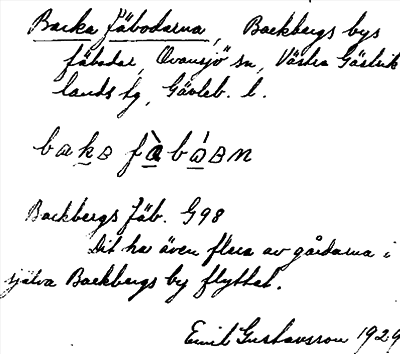 Backa Fäbodarna, Backbergs bys
fäbodar, Ovansjö sn, Västra Gästrik
lands tg, Gävleb. l.
Backbergs fäb. G98
Dit ha även flera av gårdarna i
själva Backbergs by flyttat.
Emil Gustavsson 1929